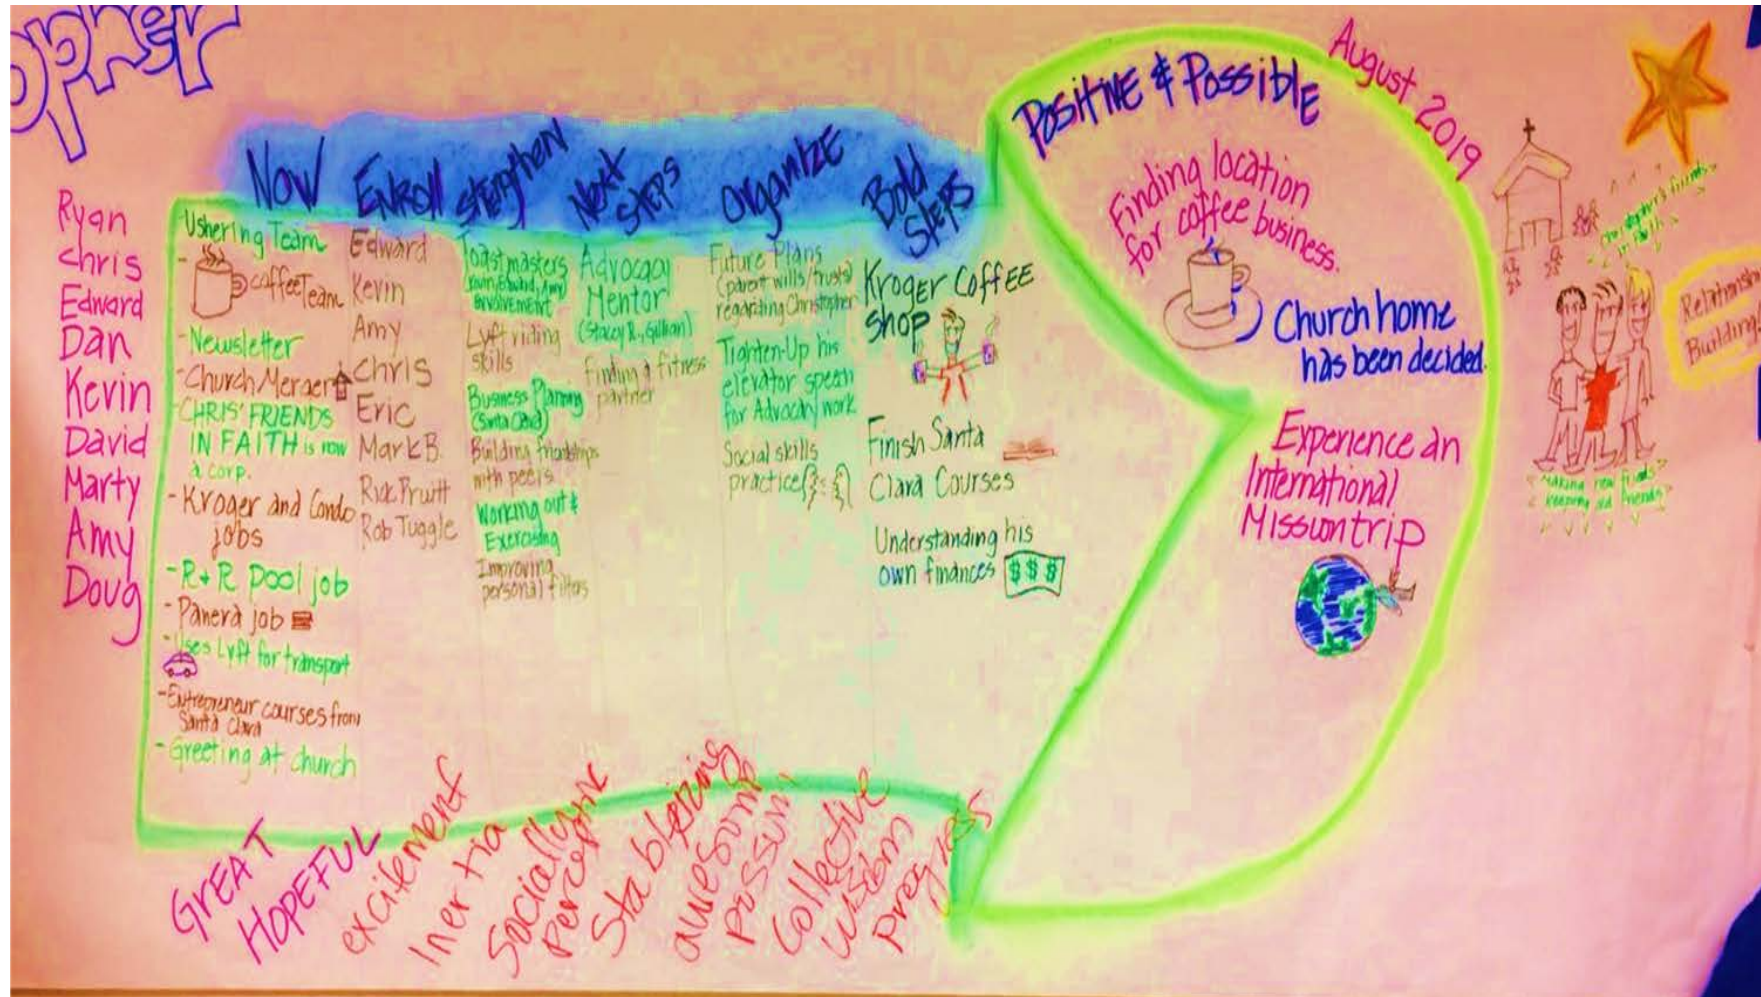 opher
Ryan
Chris
Edward
Dan
Kevin
David
Marty
Amy
Doug
Now
- Ushering Team
- coffee Team
- Newsletter
- Church Merger
- CHRIS' FRIENDS
IN FAITH is now
a corp.
- Kroger and Condo
jobs
- R+R Pool job
- Panera job
- Uses Lyft for transport
- Entrepreneur courses from
Santa Clara
- Greeting at church
Enroll
Edward
Kevin
Amy
Chris
Eric
Mark B.
Rick Pruitt
Rob Tuggle
Strengthen
Toastmasters
(Kevin, Edward, Amy)
involvement
Lyft riding
skills
Business Planning
(Santa Clara)
Building friendships
with peers
Working out &
Exercising
Improving
personal filters
Next
Steps
Advocacy
Mentor
(Stacey R., Gillian)
Finding a fitness
partner
Organize
Future Plans
(parent wills/trusts)
regarding Christopher
Tighten-Up his
elevator speech
for Advocacy work
Social skills
practice
Bold
Steps
Kroger Coffee
Shop
Finish Santa
Clara Courses
Understanding his
own finances
$$$
Positive & Possible
August 2019
Finding location
for coffee business.
Church home
has been decided.
Experience an
International
Mission trip
Christopher's friends
in faith
Making new friends
Keeping old friends
Relationship
Building
GREAT
HOPEFUL
excitement
Inertia
Socially
Perceptive
Stablizing
awesome
possum
Collective
wisdom
progress